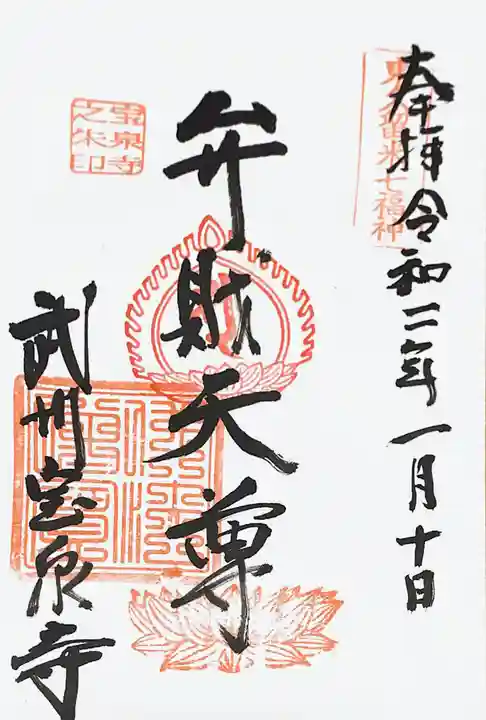 奉拝令和二年一月十日
東久留米七福神
弁財天尊
宝泉寺
之朱印
武州宝泉寺